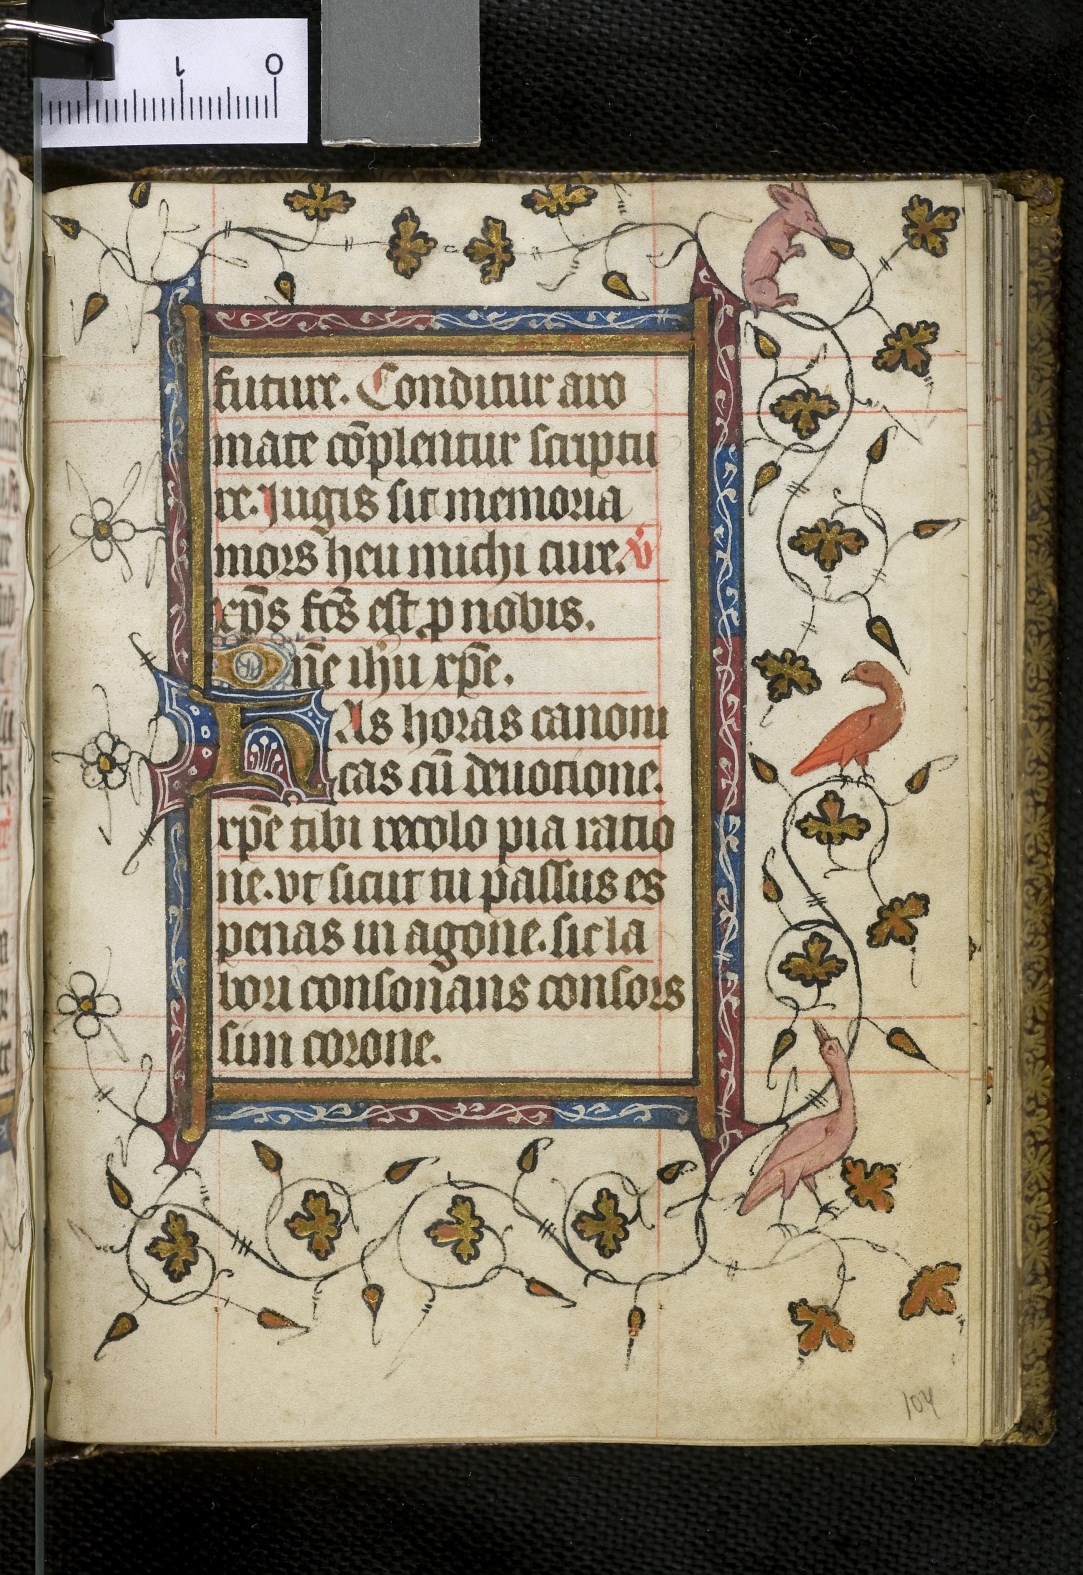 1 0
future. Conditur aro
mate cōplentur scriptu
re. Jugis sit memoria
mors heu michi cure. v̄
xp̄s fc̄s est p nobis.
Dn̄e ihu xp̄e.
HAs horas canoni
cas cū deuotione.
xp̄e tibi recolo pia ratio
ne. vt sicut tu passus es
penas in agone. sic la
bori consonans consors
sim corone.
104